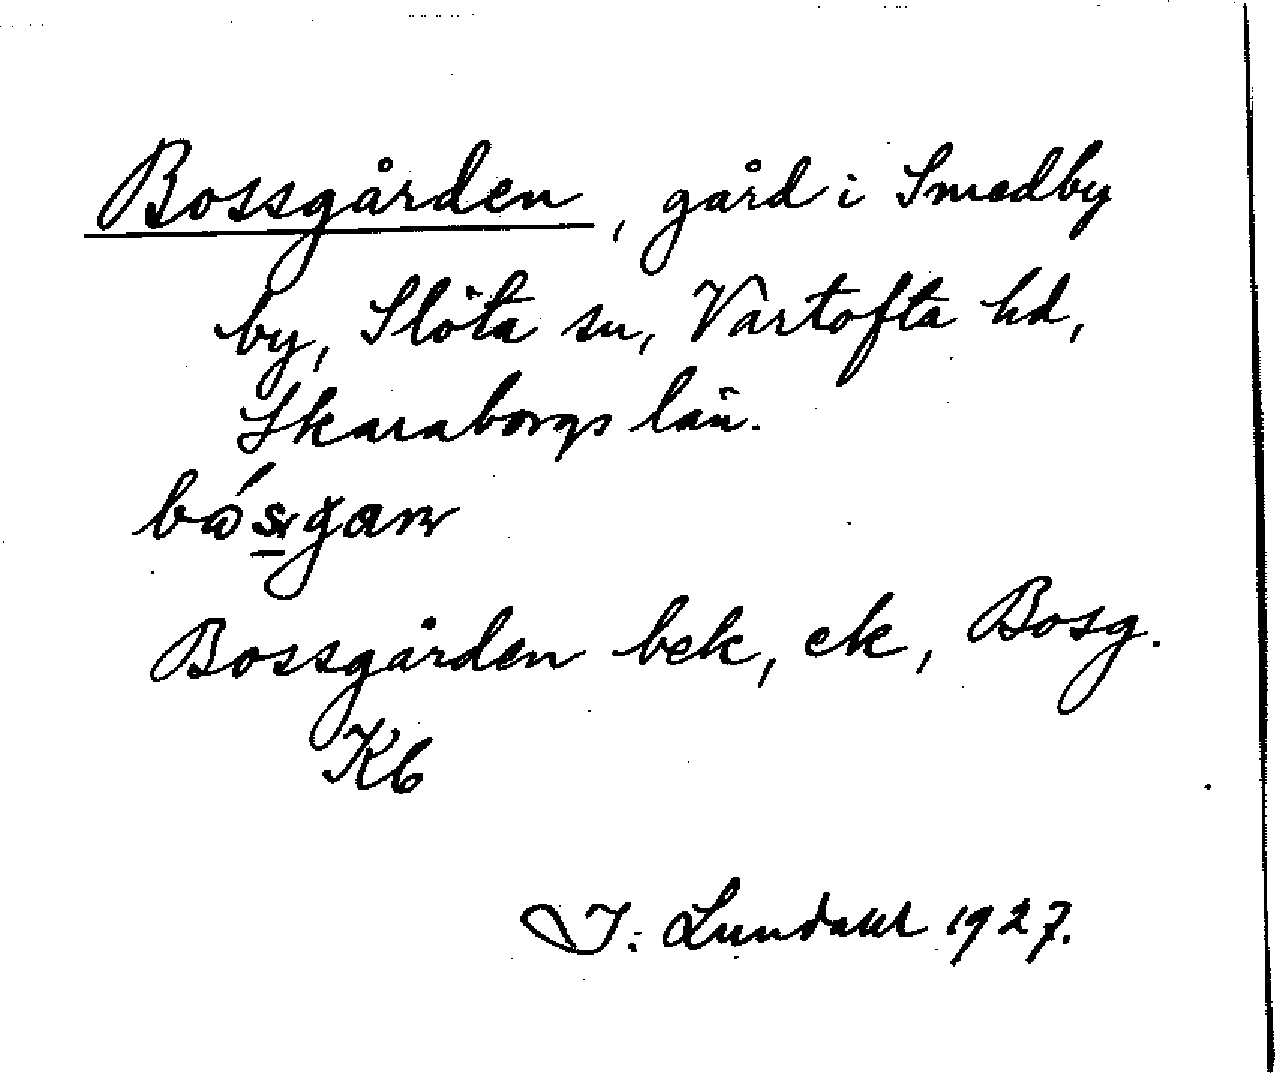 Bossgården, gård i Smedby
by, Slöta sn, Vartofta hd,
Skaraborgs län.
Bossgården bek, ek, Bosg.
Kb
I. Lundahl 1927.